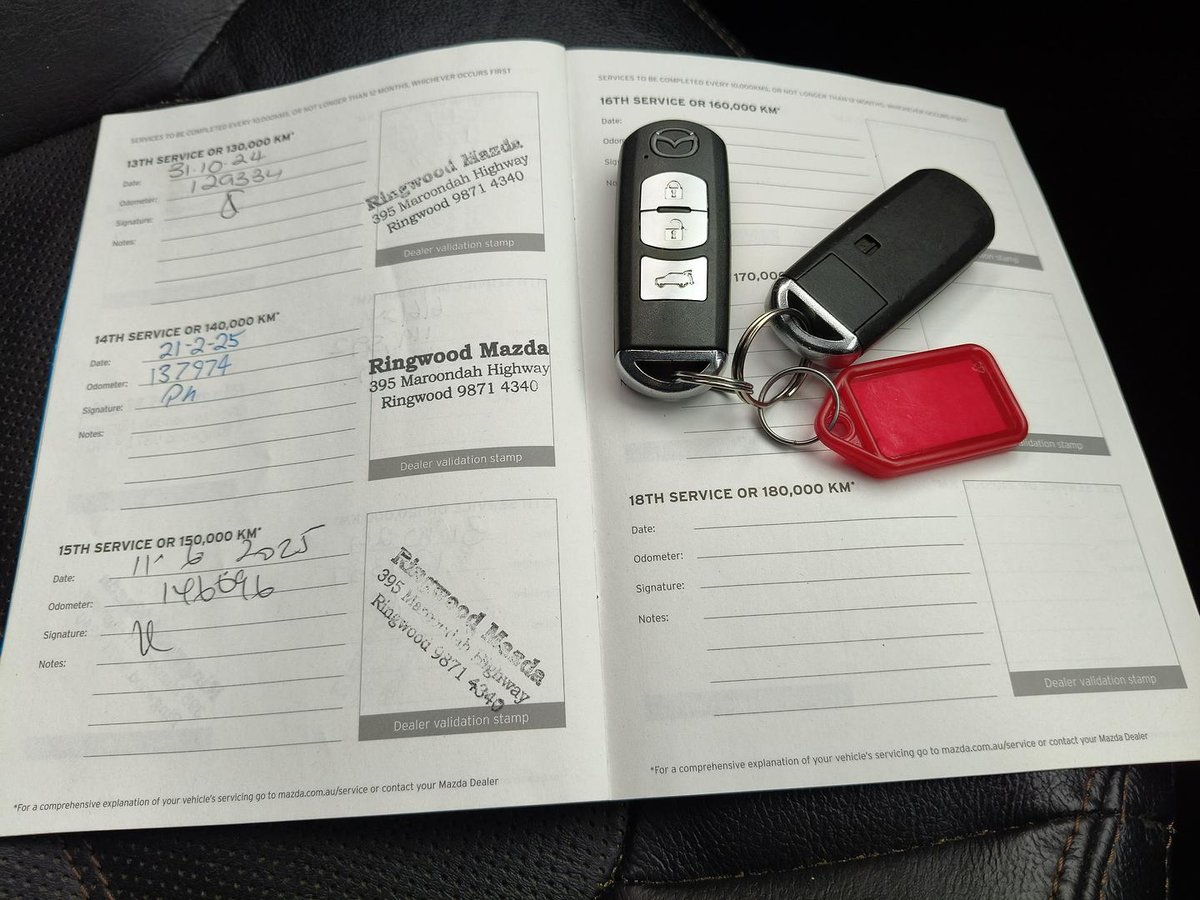 SERVICES TO BE COMPLETED EVERY 10,000KMS, OR NOT LONGER THAN 12 MONTHS, WHICHEVER OCCURS FIRST
13TH SERVICE OR 130,000 KM*
Date: 31-10-24
Odometer: 129334
Signature:
Notes:
Ringwood Mazda
395 Maroondah Highway
Ringwood 9871 4340
Dealer validation stamp
14TH SERVICE OR 140,000 KM*
Date: 21-2-25
Odometer: 137974
Signature:
Notes:
Ringwood Mazda
395 Maroondah Highway
Ringwood 9871 4340
Dealer validation stamp
15TH SERVICE OR 150,000 KM*
Date: 11-6 2025
Odometer:
Signature:
Notes:
Ringwood Mazda
395 Maroondah Highway
Ringwood 9871 4340
Dealer validation stamp
*For a comprehensive explanation of your vehicle's servicing go to mazda.com.au/service or contact your Mazda Dealer
SERVICES TO BE COMPLETED EVERY 10,000KMS, OR NOT LONGER THAN 12 MONTHS, WHICHEVER OCCURS FIRST
16TH SERVICE OR 160,000 KM*
Date:
stamp
stamp
18TH SERVICE OR 180,000 KM*
Date:
Odometer:
Signature:
Notes:
Dealer validation stamp
*For a comprehensive explanation of your vehicle's servicing go to mazda.com.au/service or contact your Mazda Dealer